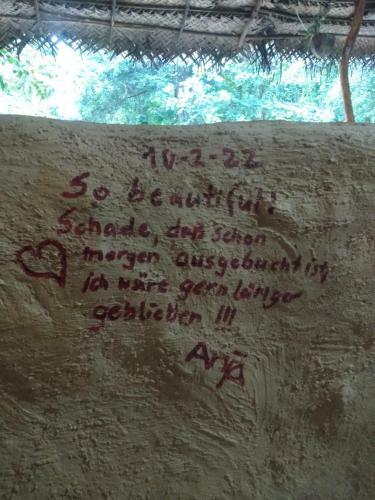 10-2-22
So beautiful!
Schade, daß schon
morgen ausgebucht ist,
ich wäre gern länger
geblieben !!!
Anja